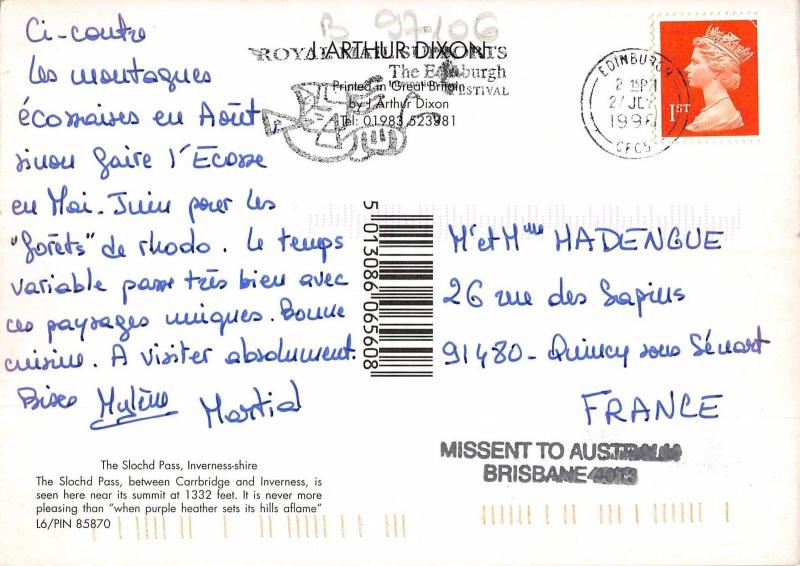 B 97-106
Ci-contre
les montagnes
écossaises en Août,
sinon faire l'Ecosse
en Mai-Juin pour les
"forêts" de rhodo. Le temps
variable passe très bien avec
ces paysages uniques. Bonne
cuisine. A visiter absolument.
Bises Mylène Martial
J. ARTHUR DIXON
Printed in Great Britain
by J Arthur Dixon
Tel: 01983 523381
ROYAL MAIL SUPPORTS
The Edinburgh
FESTIVAL
EDINBURGH
2 15PM
27 JLY
1996
1ST
5 013086 065608
Mr et Mme MADENGUE
26 rue des Sapins
91480 - Quincy sous Sénart
FRANCE
MISSENT TO AUSTRALIA
BRISBANE
The Slochd Pass, Inverness-shire
The Slochd Pass, between Carrbridge and Inverness, is
seen here near its summit at 1332 feet. It is never more
pleasing than "when purple heather sets its hills aflame"
L6/PIN 85870